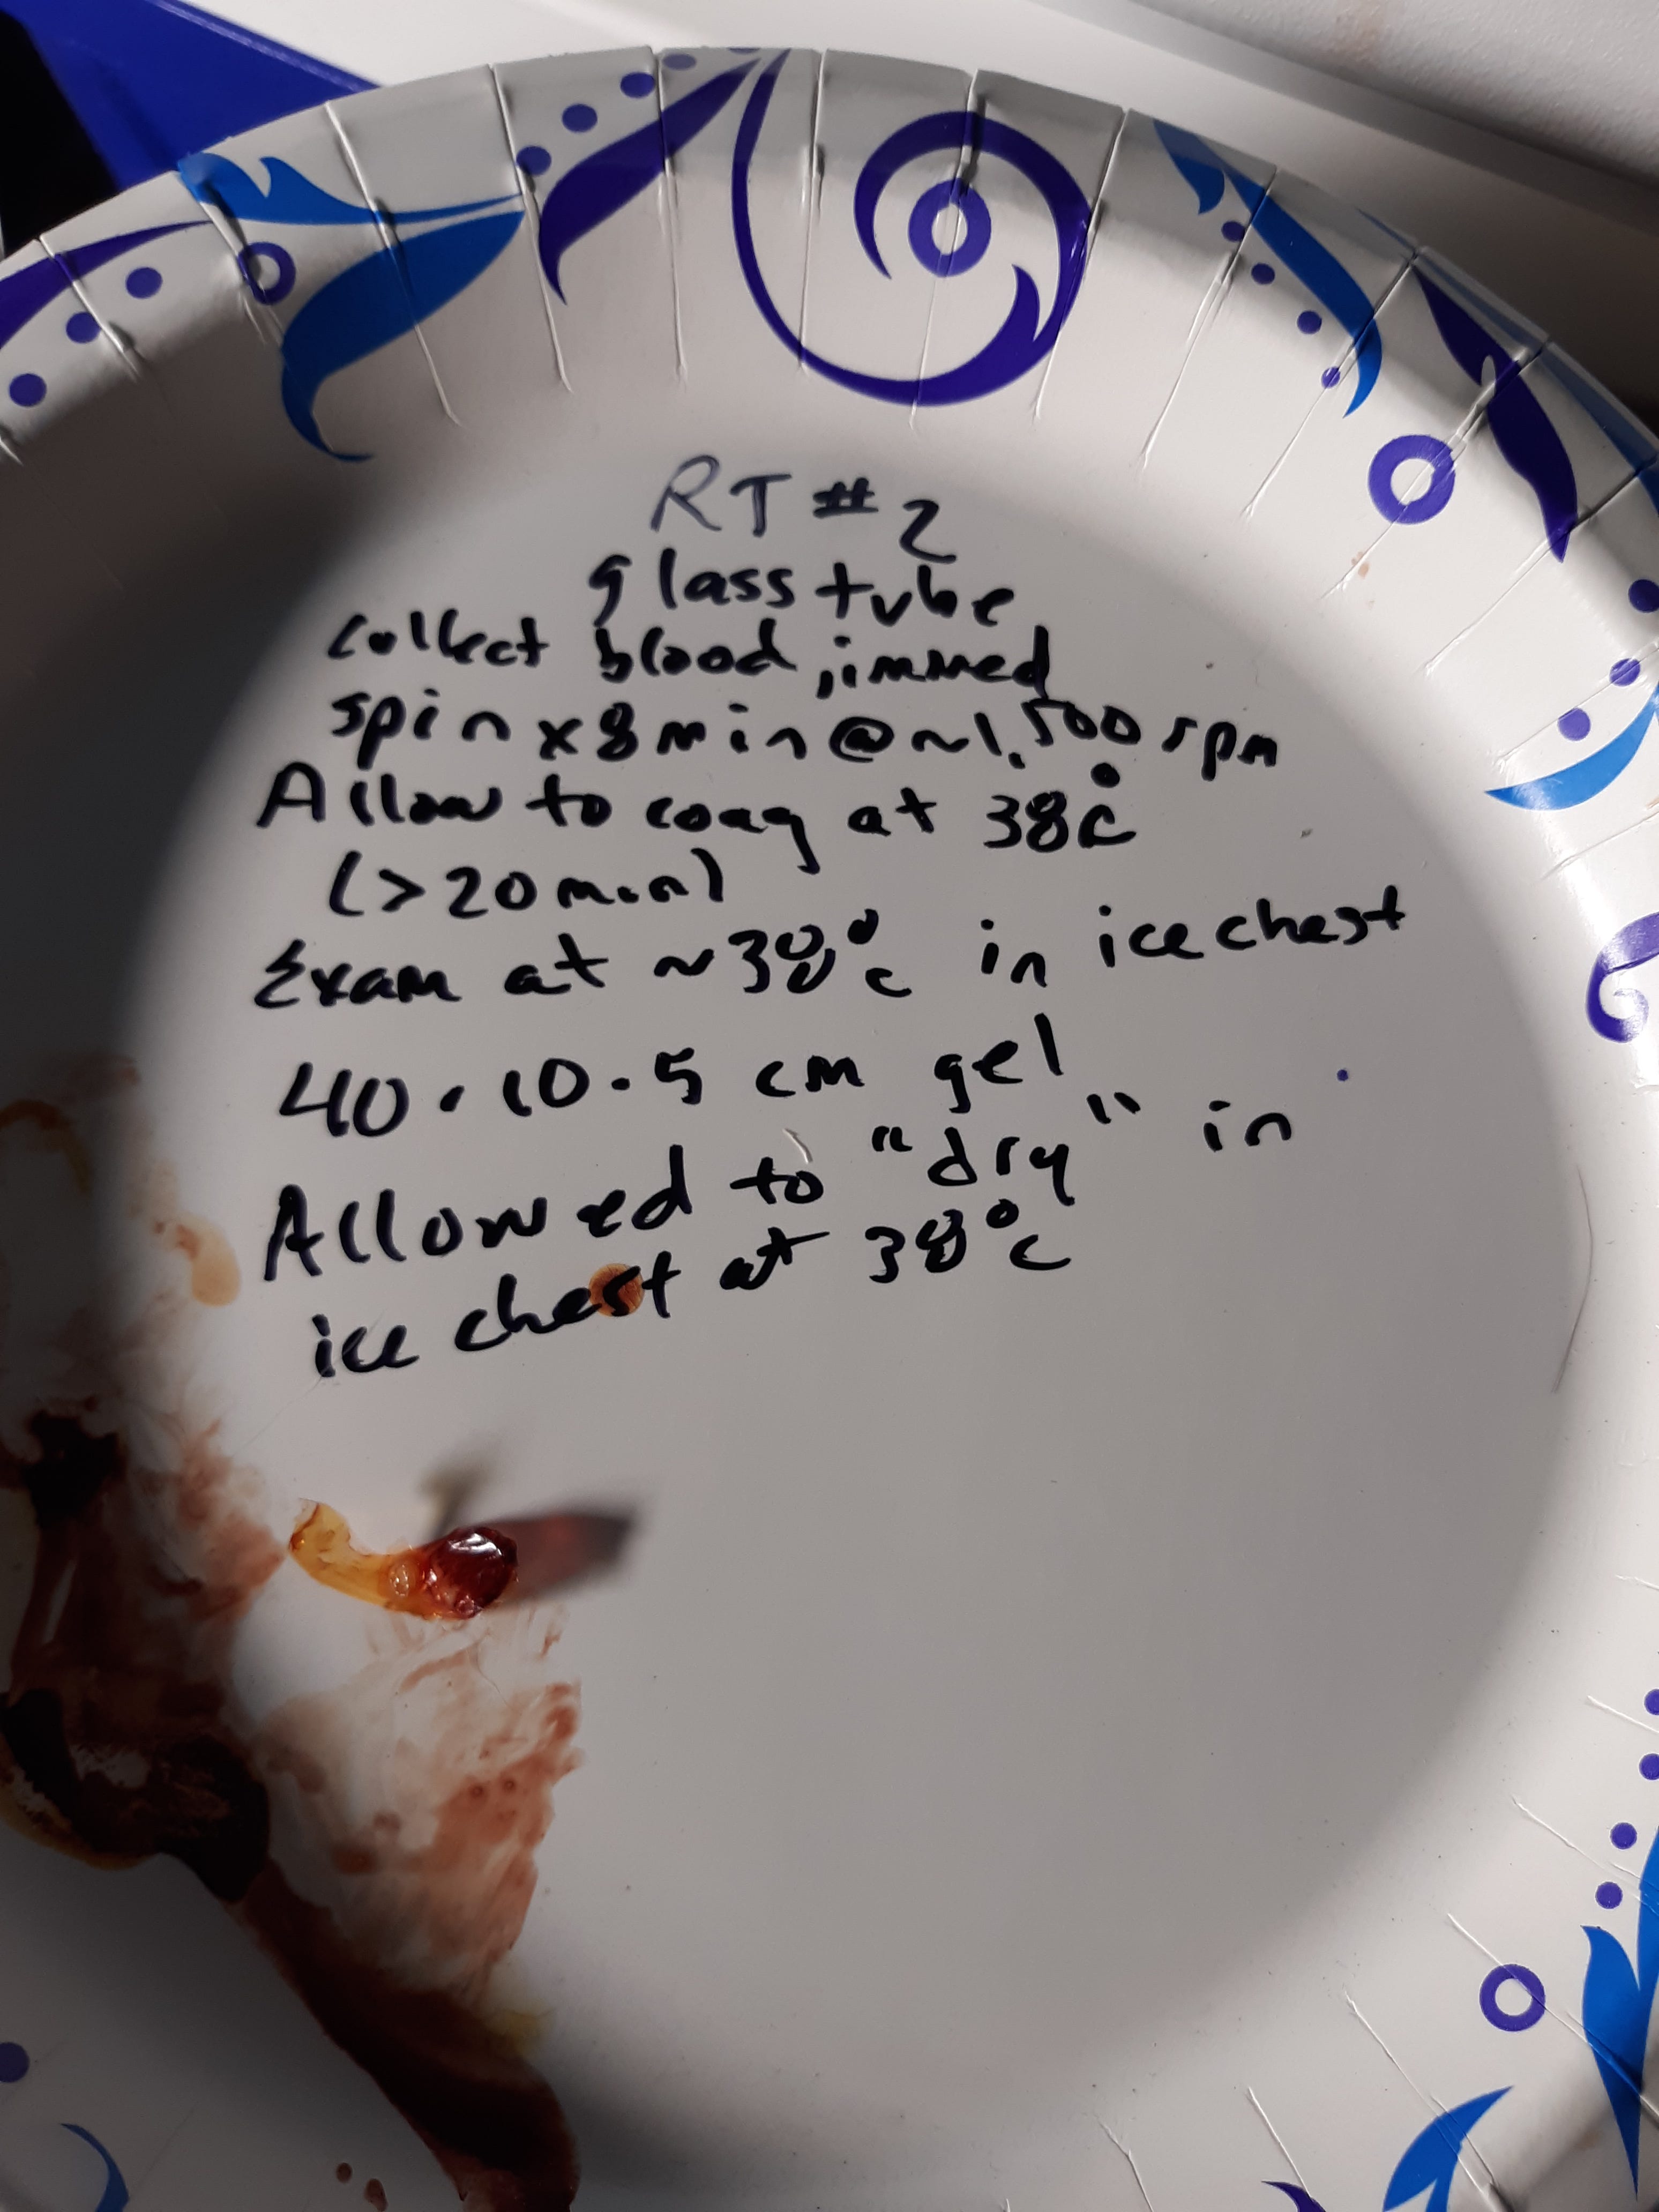 RT #2
glass tube
collect blood, immed
spin x 8 min @ ~1,500 rpm
Allow to coag at 38°C
(>20 min)
Exam at ~38°C in ice chest
40 · 10 · 5 cm gel
Allowed to "dry" in
ice chest at 38°C